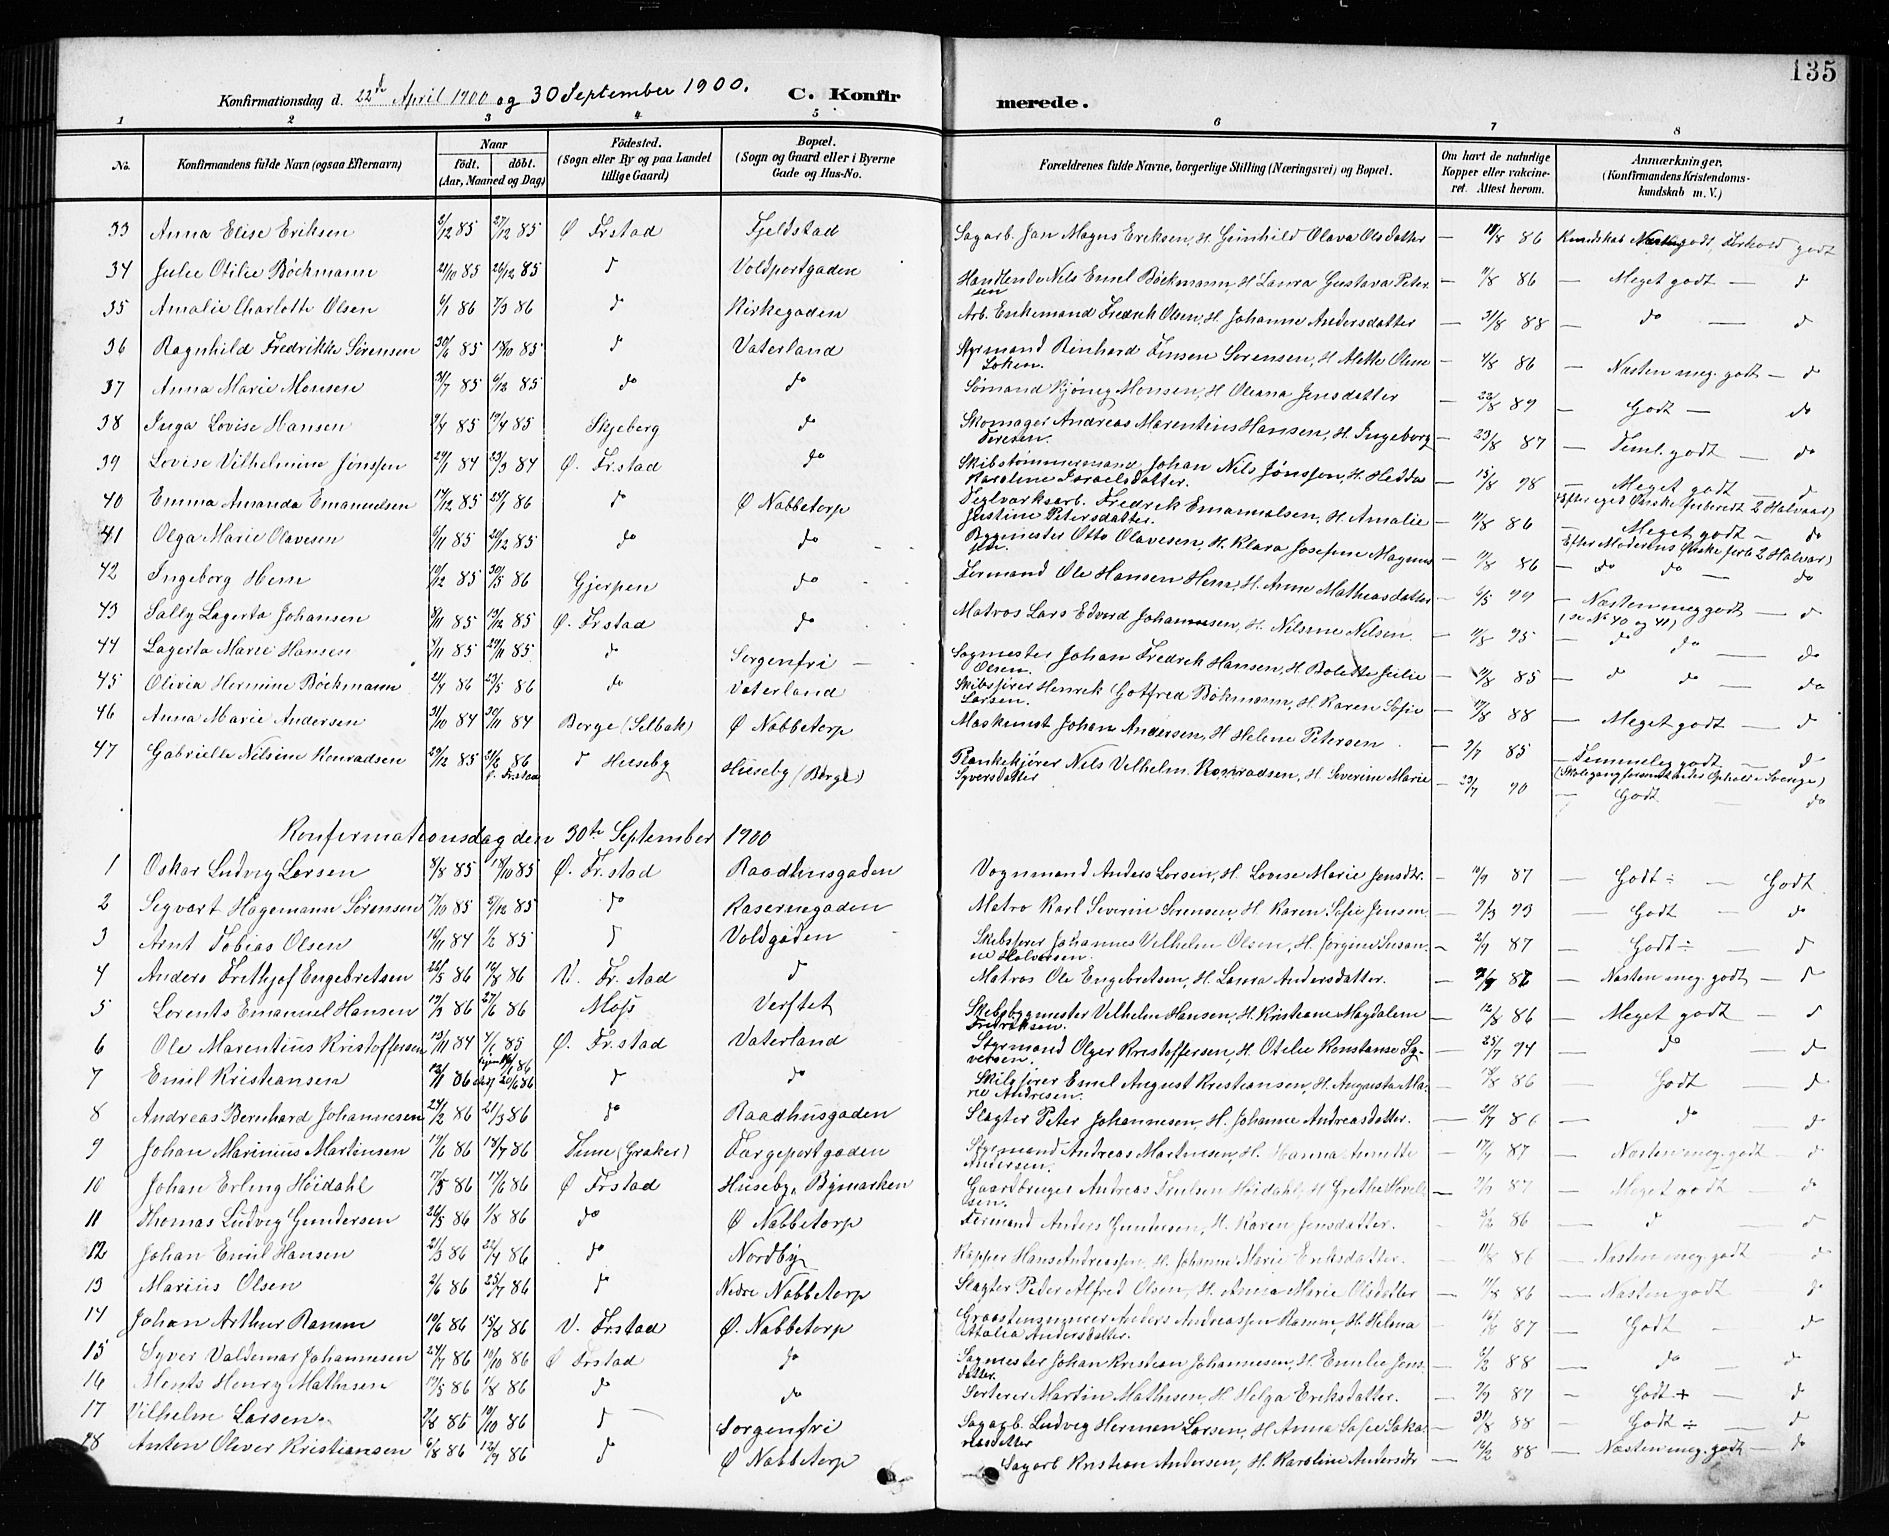 135
Konfirmationsdag d. 22de April 1900 og 30 September 1900. C. Konfirmerede.
1 2 3 4 5 6 7 8
No. Konfirmandens fulde Navn (ogsaa Efternavn) Naar født. døbt. (Aar, Maaned og Dag) Fødested. (Sogn eller By og paa Landet tillige Gaard) Bopæl. (Sogn og Gaard eller i Byerne Gade og Hus-No. Forældrenes fulde Navne, borgerlige Stilling (Næringsvei) og Bopæl. Om havt de naturlige Kopper eller vakcineret. Attest herom. Anmærkninger. (Konfirmandens Kristendomskundskab m. V.)
33 Anna Elise Eriksen 2/12 85 27/12 85 Ø Frstad Fjeldstad Sagarb. Jan Magus Eriksen, H. Gunhild Olava Olsdatter — 18/8 86 Kundskab godt, Forhold godt
34 Julie Otilie Böckmann 21/10 85 26/12 85 d Voldportgaden Handlende Nils Emil Böckmann, H. Laura Gustava Petersen — 11/8 86 — Meget godt — d
35 Amalie Charlotte Olsen 6/1 86 7/3 86 do Kirkegaden Arb. Enkemand Fredrik Olsen, H. Johanne Andersdatter — 31/8 88 — do — d
36 Ragnhild Fredrikke Sörensen 30/6 85 18/10 85 d Vaterland Styrmand Reinhard Finsen Sorensen, H. Alette Oline Loken. — 4/8 86 — Næsten meg. godt — d
37 Anna Marie Monsen 31/7 85 6/12 85 do do Sömand Kjönig Monsen, H. Oleana Jensdatter — 22/8 89 — Godt — do
38 Inga Lovise Hansen 9/4 85 19/4 85 Skjeberg do Skomager Andreas Marentius Hansen, H. Ingeborg Iversen. — 23/8 87 — Teml. godt — do
39 Lovise Vilhelmine Jönsson 29/1 84 23/3 84 Ø. Fr.stad do Skibstömmermand Johan Nils Jönsson, H. Hedda Karoline Israelsdatter. — 15/8 98 — Meget godt — d
40 Emma Amanda Emanuelsen 17/12 85 24/1 86 d Ø Nabbetorp Teglværksarb. Fredrik Emanuelsen, H. Amalie Justine Petersdatter. — 11/8 86 (Efter eget Ønske forberedt 2 Halvaar) — Meget godt — do
41 Olga Marie Olavesen 6/11 85 20/12 85 do do Bygmester Otto Olavesen, H. Klara Josefine Magnus — 11/8 86 Efter Moderens Ønske forb. 2 Halvar) — do do — do
42 Ingeborg Hem 10/12 85 30/5 86 Gjerpen do Formand Ole Hansen Hem, H. Anne Mathiasdatter — 6/5 99 — Næsten meg godt — d
43 Sally Lagerta Johansen 8/11 85 13/12 85 Ø. Frstad do Matros Lars Edvard Johannesen, H. Nilsine Nilsen. — 11/8 95 (se No 40 og 41) — do do — do
44 Lagerta Marie Hansen 7/11 85 29/11 85 d Sorgenfri — Sagmester Johan Fredrik Hansen, H. Bolette Julie Olsen. — 11/8 85 — d do — do
45 Olivia Hermine Böckmann 24/4 86 23/5 86 do Vaterland Skibsförer Henrik Gotfred Bökmann, H. Karen Sofie Larsen. — 17/8 88 — Meget godt — d
46 Anna Marie Andersen 31/10 84 30/11 84 Borge (Selbak) Ø Nabbetorp Maskinist Johan Andersen, H Helene Petersen — 9/7 85 — Temmelig godt — d
47 Gabrielle Nilsine Konradsen 29/12 85 21/2 86 Ø. Fr.stad d Huseby Huseby (Borge) Plankekjører Nils Vilhelm Konradsen, H. Severine Marie Syversdatter — 23/7 90 (Skolegang forsømt under Ophold i Sverige) — Godt — do
Konfirmationsdag den 30te September 1900
1 Oskar Ludvig Larsen 8/8 85 18/10 85 Ø. Fr.stad Raadhusgaden Vognmand Anders Larsen, H. Lovise Marie Jensdtr. — 10/9 87 — Godt ÷ — Godt
2 Sigvart Hagemann Sörensen 17/10 85 6/12 85 do Kaserinegaden Matro Karl Severin Sorensen, H. Karen Sofie Jensen — 9/3 93 — Godt — do
3 Arnt Tobias Olsen 16/11 84 1/2 85 d Voldgaden Skibsförer Johannes Vilhelm Olsen, H. Jørgine Susanne Halvorsen — 2/9 87 — Godt ÷ — d
4 Anders Frithjof Engebretsen 22/5 86 10/8 86 V. Fr. stad d Matros Ole Engebretsen, H. Laura Andersdatter. — 9/9 87 — Næsten meg. godt — d
5 Lorents Emanuel Hansen 19/3 86 27/6 86 Moss Verftet Skibsbygmester Vilhelm Hansen, H. Kristiane Magdalene Fredriksen. — 12/8 86 — Meget godt — d
6 Ole Marentius Kristoffersen 13/11 84 4/1 85 Ø. Fr.stad Vaterland Styrmand Olger Kristoffersen, H. Otelie Konstanse Syversen. — 25/7 94 — d — d
7 Emil Kristiansen 12/1 86 20/6 86 d do Skibsfjører Emil August Kristiansen, H. Augusta Marie Andresen. — 18/8 86 — Godt — d
8 Andreas Bernhard Johannesen 24/2 86 21/3 86 do Raadhusgaden Slagter Peter Johannesen, H. Johanne Andreasdatter. — 2/7 86 — d — d
9 Johan Marinius Martinsen 19/6 86 18/7 86 Tune (Graker) Færgeportgaden Styrmand Andreas Martinsen, H. Hanna Annette Andersen. — 17/9 87 — Næsten meg. godt — d
10 Johan Erling Höidahl 17/5 86 17/6 86 Ø Frstad Huseby, Bymarken Gaardbruger Andreas Truelsen Höidahl, H Grethe Hovelsen. — 9/9 87 — Meget godt — d
11 Thomas Ludvig Gundersen 26/5 86 1/8 86 do Ø Nabbetorp Formand Anders Gundersen, H. Karen Jensdatter. — 9/2 86 — d — d
12 Johan Emil Hansen 21/3 86 22/4 86 do Nordby Kapper Hans Andreassen, H. Johanne Marie Eriksdatter. — 11/8 86 — Næsten meg. godt — d
13 Marius Olsen 2/6 86 25/7 86 d Nedre Nabbetorp Slagter Peder Alfred Olsen, H. Anna Marie Olsdatter — 11/8 86 — Næsten godt — do
14 Johan Arthur Ramm 10/6 86 15/8 86 V. Frstad Ø. Nabbetorp Graastensmurer Anders Andreassen Ramm, H. Helena Atalia Andersdatter. — 16/9 87 — Godt — d
15 Syver Valdemar Johannesen 24/7 86 10/10 86 Ø Frstad do Sagmester Johan Kristian Johannesen, H. Emilie Jensdatter. — 6/2 88 — do — d
16 Monts Henry Mathisen 19/5 86 1/8 86 d do Sorterer Martin Mathisen, H. Helga Eriksdatter. — 9/9 87 — Godt + — d
17 Vilhelm Larsen 7/8 86 10/10 86 d — Sorgenfri Sagarb. Ludvig Herman Larsen, H. Anna Sofie Sakariasdatter — 31/8 88 — Godt ÷ — d
18 Anton Oliver Kristiansen 6/8 86 12/9 86 d Ø Nabbetorp Sagarb Kristian Andersen, H. Karoline Andersdtr — 16/2 88 — Næsten meg. godt — do